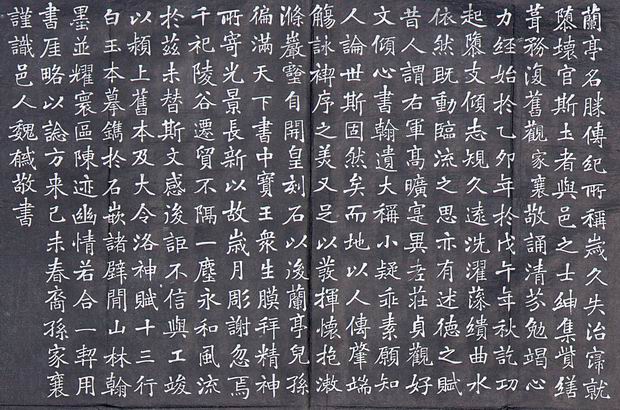 蘭亭名勝傳紀所稱歲久失治寖就
隳壞官斯土者與邑之士紳集貲繕
葺務復舊觀家襄敬誦清芬勉竭心
力經始於乙卯年於戊午年秋訖功
起隳文傾志規久遠洗濯藻繢曲水
依然既動臨流之思亦有述德之賦
昔人謂右軍高曠寔異老莊貞觀好
文傾心書翰遺大稱小疑乖素願知
人論世斯固然矣而地以人傳肇端
觴詠禊序之美又足以發揮懷抱漱
滌巖壑自開皇刻石以後蘭亭兒孫
徧滿天下書中寶王衆生膜拜精神
所寄光景長新以故歲月彫謝忽焉
千祀陵谷遷貿不隔一塵永和風流
於茲未替斯文感後詎不信與工竣
以潁上舊本及大令洛神賦十三行
白玉本摹鐫於石嵌諸壁間山林翰
墨並耀寰區陳迹幽情若合一契用
書厓略以諗方來己未春裔孫家襄
謹識邑人魏戫敬書